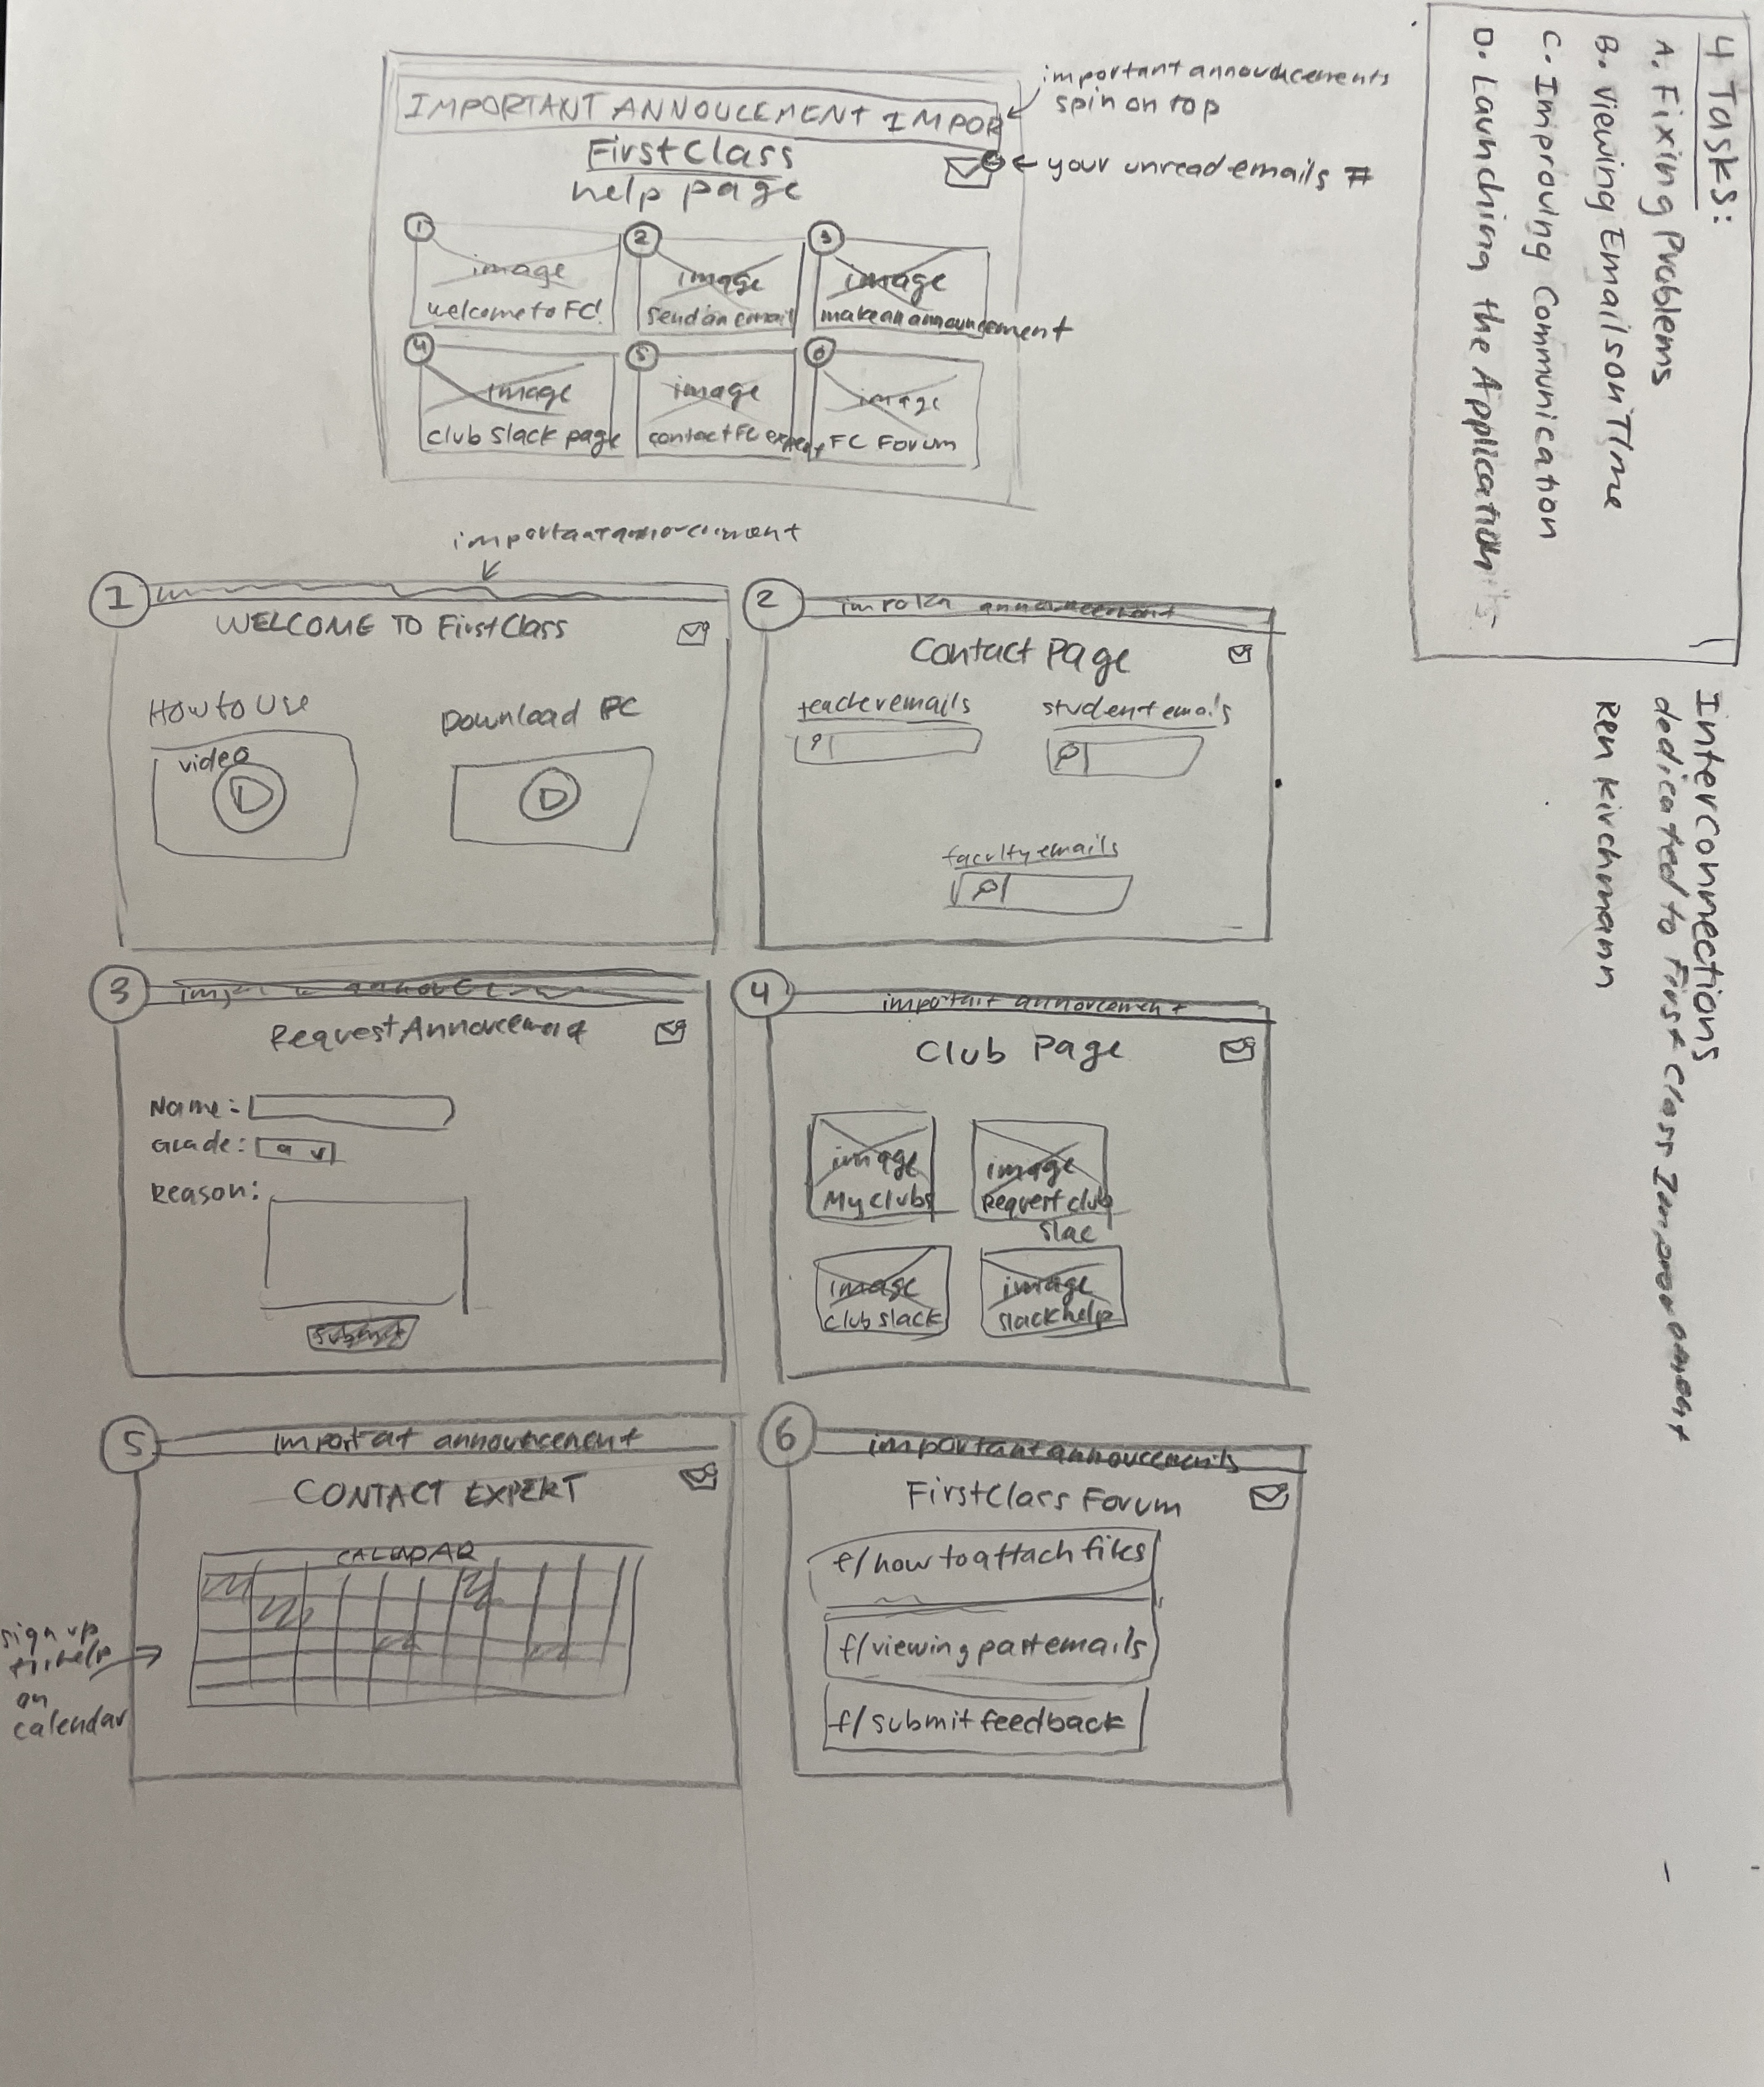 4 Tasks:
A. Fixing Problems
B. Viewing Emails on Time
C. Improving Communication
D. Launching the Application
Interconnections
dedicated to First Class Improvement
Ren Kirchmann
important annoucements
spin on top
IMPORTANT ANNOUCEMENT IMPOR
FirstClass
help page
your unread emails #
1
image
welcome to FC!
2
image
send an email
3
image
make an announcement
4
image
club slack page
5
image
contact FC expert
6
image
FC Forum
important announcement
1
WELCOME TO FirstClass
How to Use
video
Download FC
2
announcement
Contact Page
teacher emails
student emails
faculty emails
3
Request Annoucement
Name:
Grade: 9 v
Reason:
submit
4
important annoucement
Club Page
image
My clubs
image
Request club
slac
image
club slack
image
slack help
5
importat announcement
CONTACT EXPERT
CALENDAR
sign up
for help
on
calendar
6
important annoucements
FirstClass Forum
f/how to attach files
f/viewing past emails
f/submit feedback